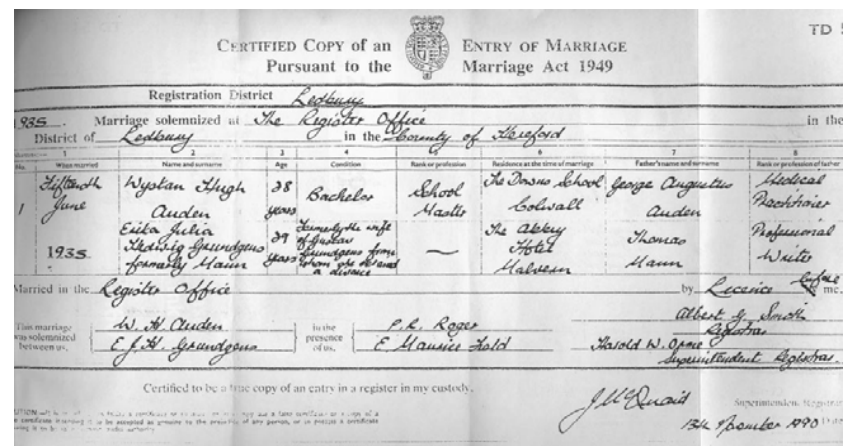 TD 5
CERTIFIED COPY of an ENTRY OF MARRIAGE
Pursuant to the Marriage Act 1949
Registration District Ledbury
1935. Marriage solemnized at The Register Office in the
District of Ledbury in the County of Hereford
1 2 3 4 5 6 7 8
No. When married Name and surname Age Condition Rank or profession Residence at the time of marriage Father's name and surname Rank or profession of father
1 Fifteenth June 1935
Wystan Hugh Auden 28 years Bachelor School Master The Downs School Colwall George Augustus Auden Medical Practitioner
Erika Julia Hedwig Grundgens formerly Mann 29 years Formerly the wife of Gustav Grundgens from whom she obtained a divorce — The Abbey Hotel Malvern Thomas Mann Professional Writer
Married in the Register Office by Licence before me,
This marriage was solemnized between us, W. H. Auden
E. J. H. Grundgens
in the presence of us, P. R. Roger
E Maurice Feld
Albert G. Smith
Registrar
Harold W. Orme
Superintendent Registrar
Certified to be a true copy of an entry in a register in my custody.
J McQuaid Superintendent Registrar
13th November 1990 Date